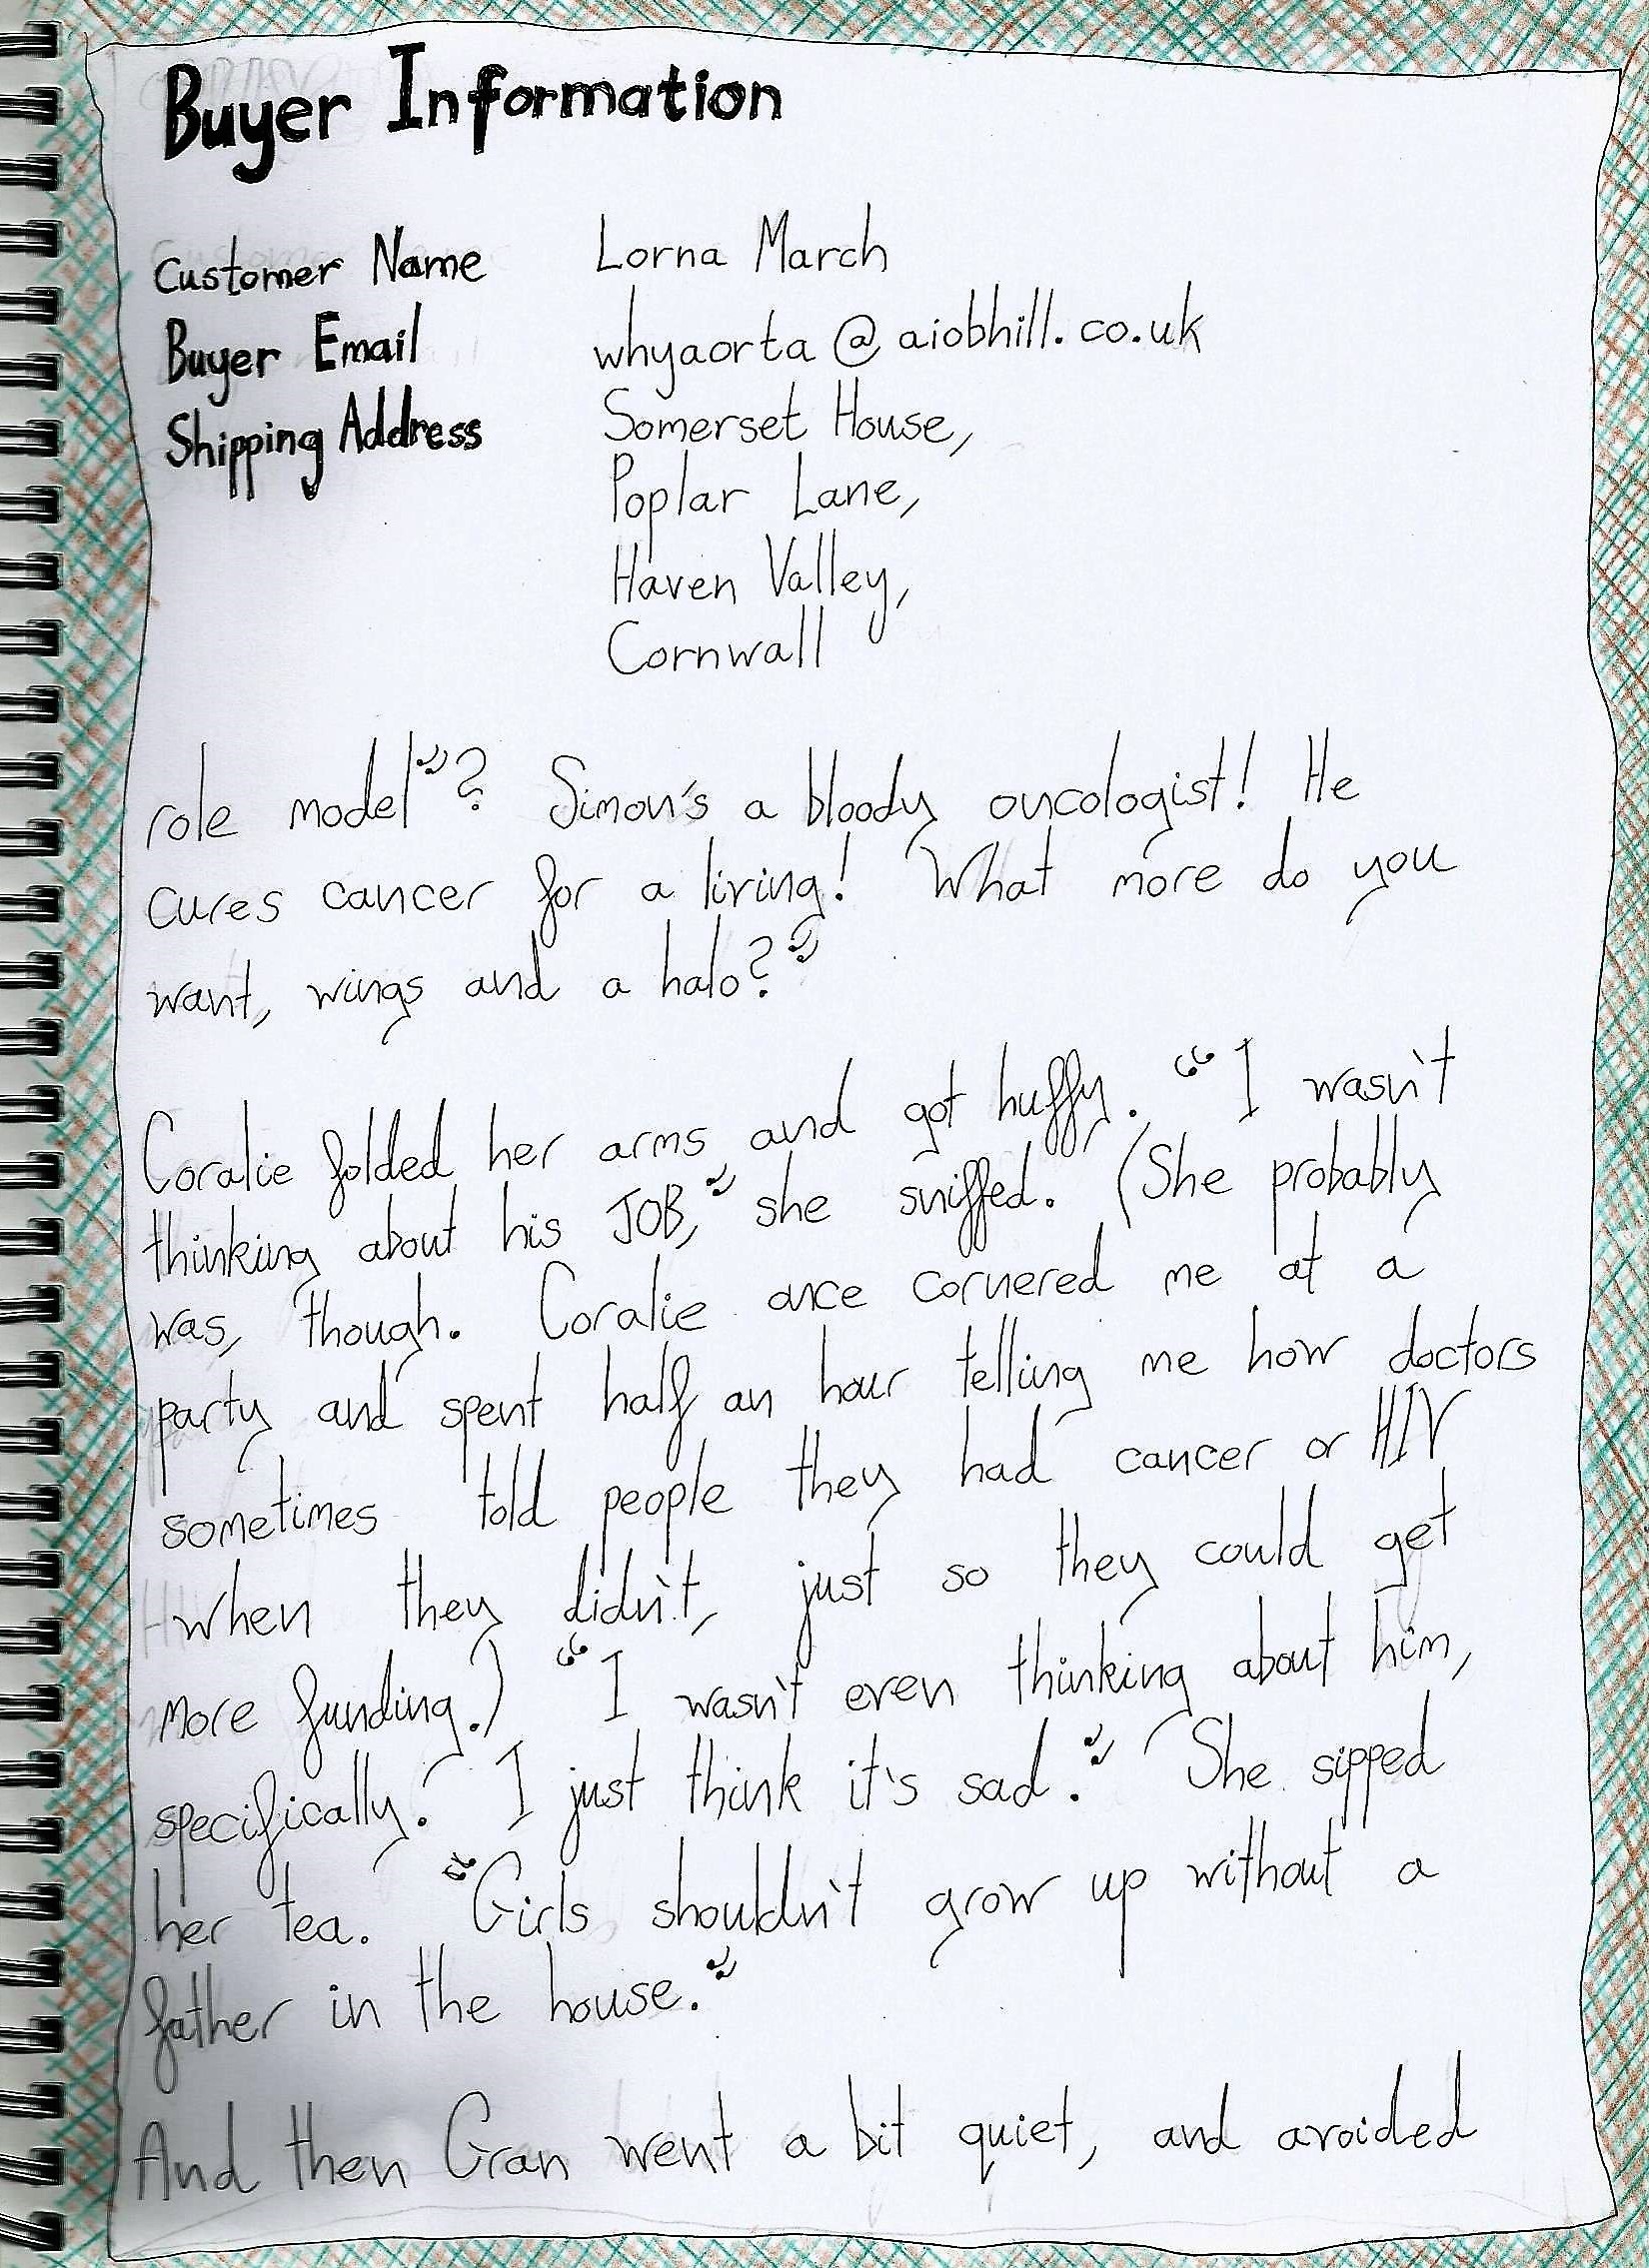 Buyer Information
Customer Name Lorna March
Buyer Email whyaorta@aiobhill.co.uk
Shipping Address Somerset House,
Poplar Lane,
Haven Valley,
Cornwall
role model”? Simon's a bloody oncologist! He
cures cancer for a living! What more do you
want, wings and a halo?”
Coralie folded her arms and got huffy. “I wasn't
thinking about his JOB,” she sniffed. (She probably
was, though. Coralie once cornered me at a
party and spent half an hour telling me how doctors
sometimes told people they had cancer or HIV
when they didn't, just so they could get
more funding.) “I wasn't even thinking about him,
specifically. I just think it's sad.” She sipped
her tea. “Girls shouldn't grow up without a
father in the house.”
And then Gran went a bit quiet, and avoided